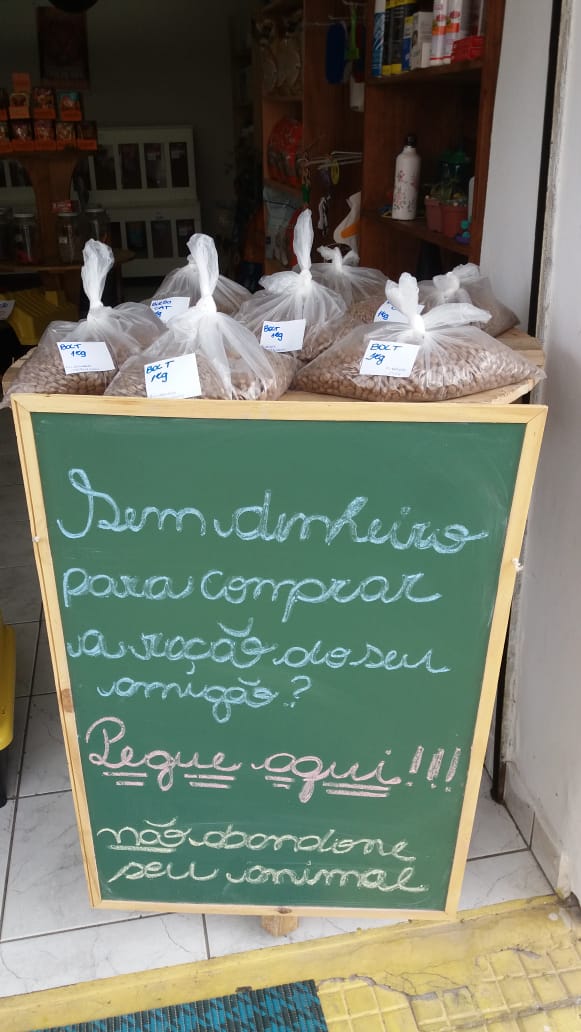 BOLT
1Kg
BOLT
1Kg
CAT
1Kg
BOLT
1Kg
BOLT
1Kg
Sem dinheiro
para comprar
a ração do seu
amigão?
Pegue aqui!!!
não abandone
seu animal